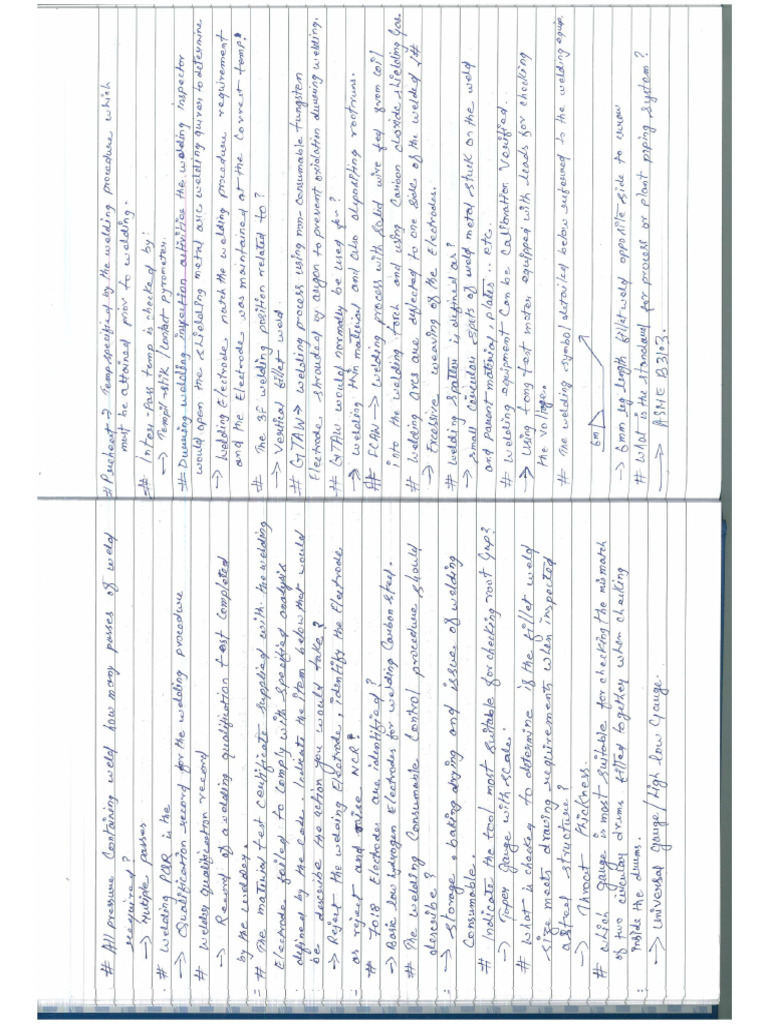 # All pressure Containing weld how many passes of weld
required?
→ Mutiple passes
# Welding PQR is the
→ Qualification record for the welding procedure
# Welder Qualification record
→ Record of a welding qualification test Completed
by the welder.
# The material test certificate supplied with the welding
Electrode failed to comply with specified analysis
defined by the code. Indicate the item below that would
be describe the action you would take?
→ Reject the welding Electrode, identify the Electrode
as reject and raise NCR?
# 7018 Electrode are identified?
→ Basic low hydrogen Electrodes for welding Carbon steel.
# The welding Consumable Control procedure should
describe?
→ storage, baking drying and issue of welding
Consumable.
# Indicate the tool most suitable for checking root Gap?
→ Taper Gauge with scale.
# What is checking to determine if the fillet weld
size meets drawing requirements when inspected
a steel structure?
→ Throat thickness.
# which gauge is most suitable for checking the mismatch
of two circular drums fitted together when checking
inside the drums.
→ Universal Gauge / High low Gauge.
# Preheat → Temp specified by the welding procedure which
must be attained prior to welding.
# Inter-Pass temp is checked by:
→ Tempil-stik / Contact pyrometer.
# During welding inspection activities the welding inspector
would open the shielding metal arc welding quiver to determine
→ Welding Electrode match the welding procedure requirement
and the Electrode was maintained at the Correct temp?
# The 3F welding position related to?
→ Vertical fillet weld.
# GTAW → welding process using non-consumable tungsten
Electrode shrouded by argon to prevent oxidation during welding.
# GTAW would normally be used for?
→ welding thin material and also depositing rootruns.
# FCAW → welding process with solid wire fed from coil
into the welding torch and using Carbon dioxide shielding Gas.
# Welding arcs are deflected to one sides of the welded Jt
→ Excessive weaving of the Electrodes.
# Welding spatter is defined as?
→ small circular spots of weld metal stuck on the weld
and parent material, plates... etc.
# Welding equipment Can be Calibration Verified...
→ Using tong test meter equipped with leads for checking
the Voltage.
# The welding symbol detailed below referred to the welding equip.
6m
→ 6mm leg length fillet weld opposite side to arrow
# What is the standard for process or plant piping system?
→ ASME B31.3.